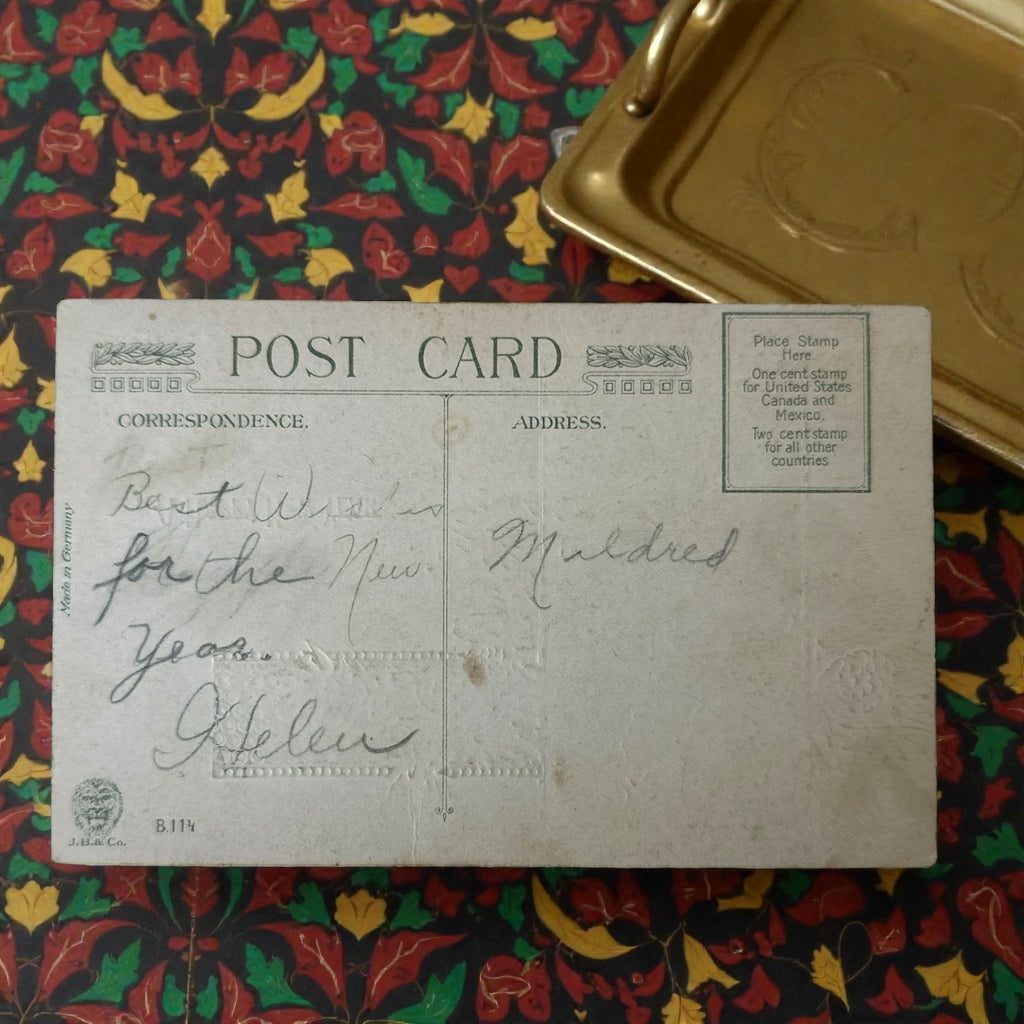 POST CARD
CORRESPONDENCE.
ADDRESS.
Place Stamp
Here.
One cent stamp
for United States
Canada and
Mexico.
Two cent stamp
for all other
countries
Made in Germany
Best Wis'is
for the New
Year.
Helen
Mildred
J.B.& Co.
B.114